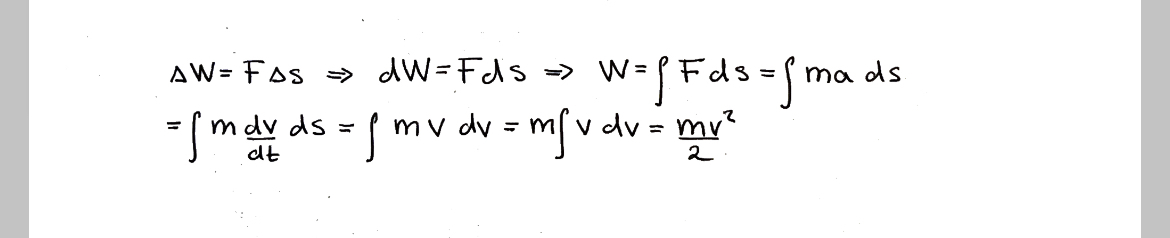 ΔW = FΔs ⇒ dW = Fds ⇒ W = ∫ F ds = ∫ ma ds
= ∫ m dv/dt ds = ∫ m v dv = m∫ v dv = mv²/2